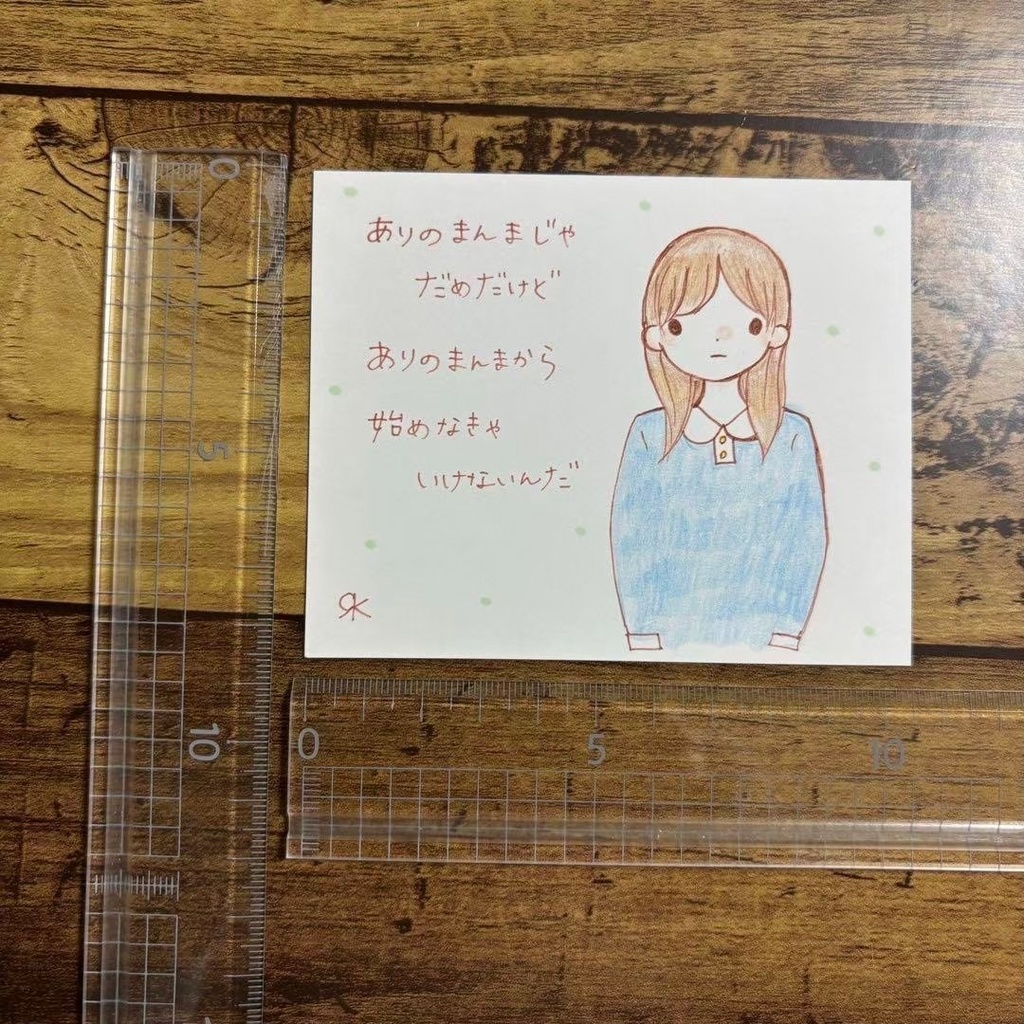 ありのまんまじゃ
だめだけど
ありのまんまから
始めなきゃ
いけないんだ
RK
0
5
10
0 5 10